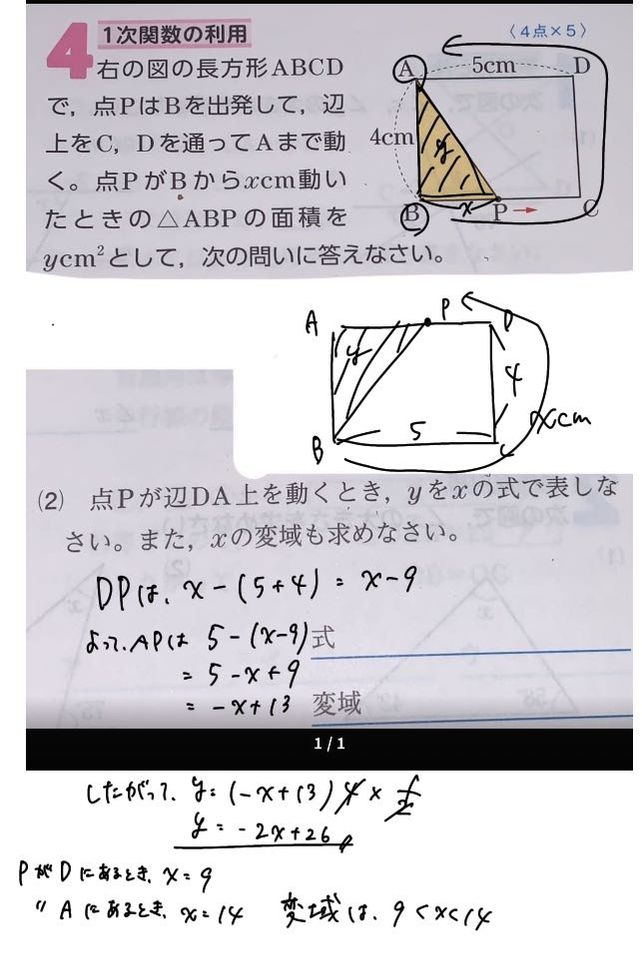 4 1次関数の利用 〈4点×5〉
右の図の長方形ABCD
で，点PはBを出発して，辺
上をC，Dを通ってAまで動
く。点PがBからxcm動い
たときの△ABPの面積を
ycm²として，次の問いに答えなさい。
A 5cm D
4cm y
B x P → C
A P D
y 4
5 xcm
B C
(2) 点Pが辺DA上を動くとき，yをxの式で表しな
さい。また，xの変域も求めなさい。
DPは、x-(5+4) = x-9
よって、APは 5-(x-9) 式
= 5-x+9
= -x+13 変域
1/1
したがって、y=(-x+13)4×1/2
y=-2x+26
PがDにあるとき、x=9
〃 Aにあるとき、x=14 変域は、9<x<14